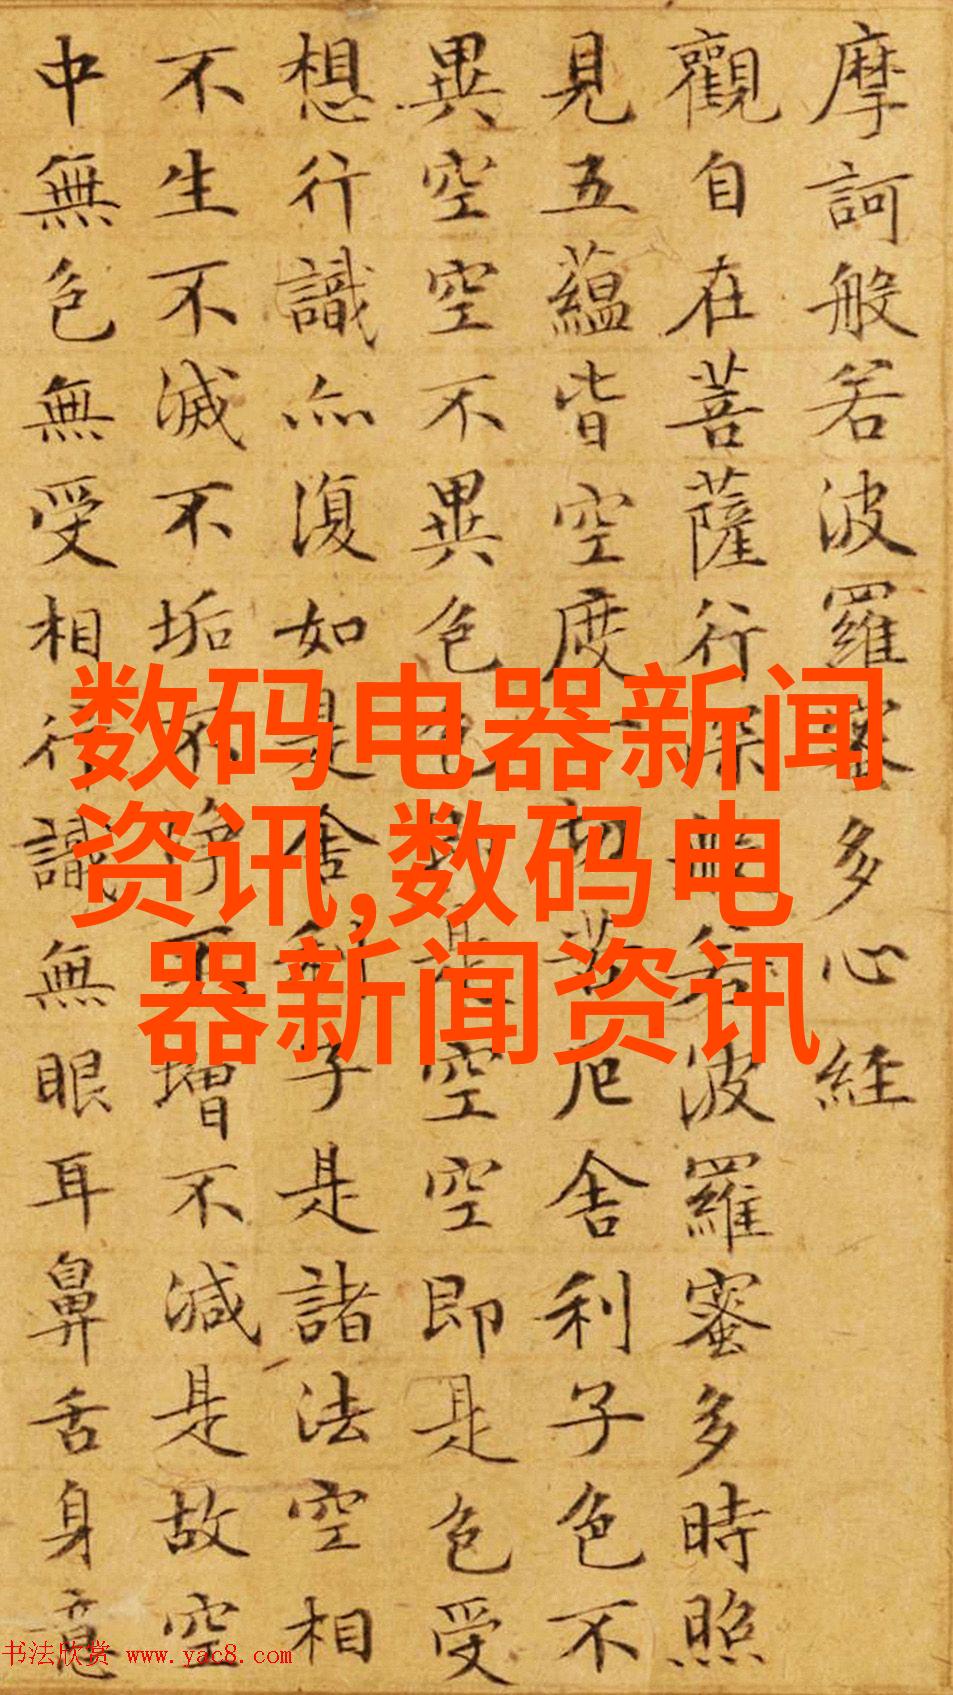 摩訶般若波羅蜜多心經
觀自在菩薩行深般若波羅蜜多時照
見五蘊皆空度一切苦厄舍利子色不
異空空不異色色即是空空即是色受
想行識亦復如是舍利子是諸法空相
不生不滅不垢不淨不增不減是故空
中無色無受相行識無眼耳鼻舌身意
数码电器新闻
资讯,数码电
器新闻资讯
书法欣赏 www.yac8.com